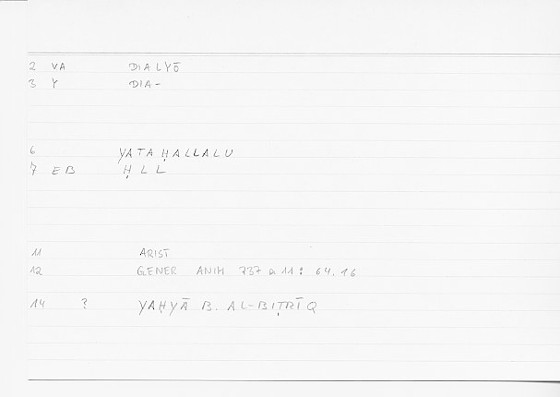 2 VA DIALYŌ
3 Y DIA-
6 YATAḤALLALU
7 EB ḤLL
11 ARIST
12 GENER ANIM 737 a 11: 64.16
14 ? YAḤYĀ B. AL-BIṬRĪQ